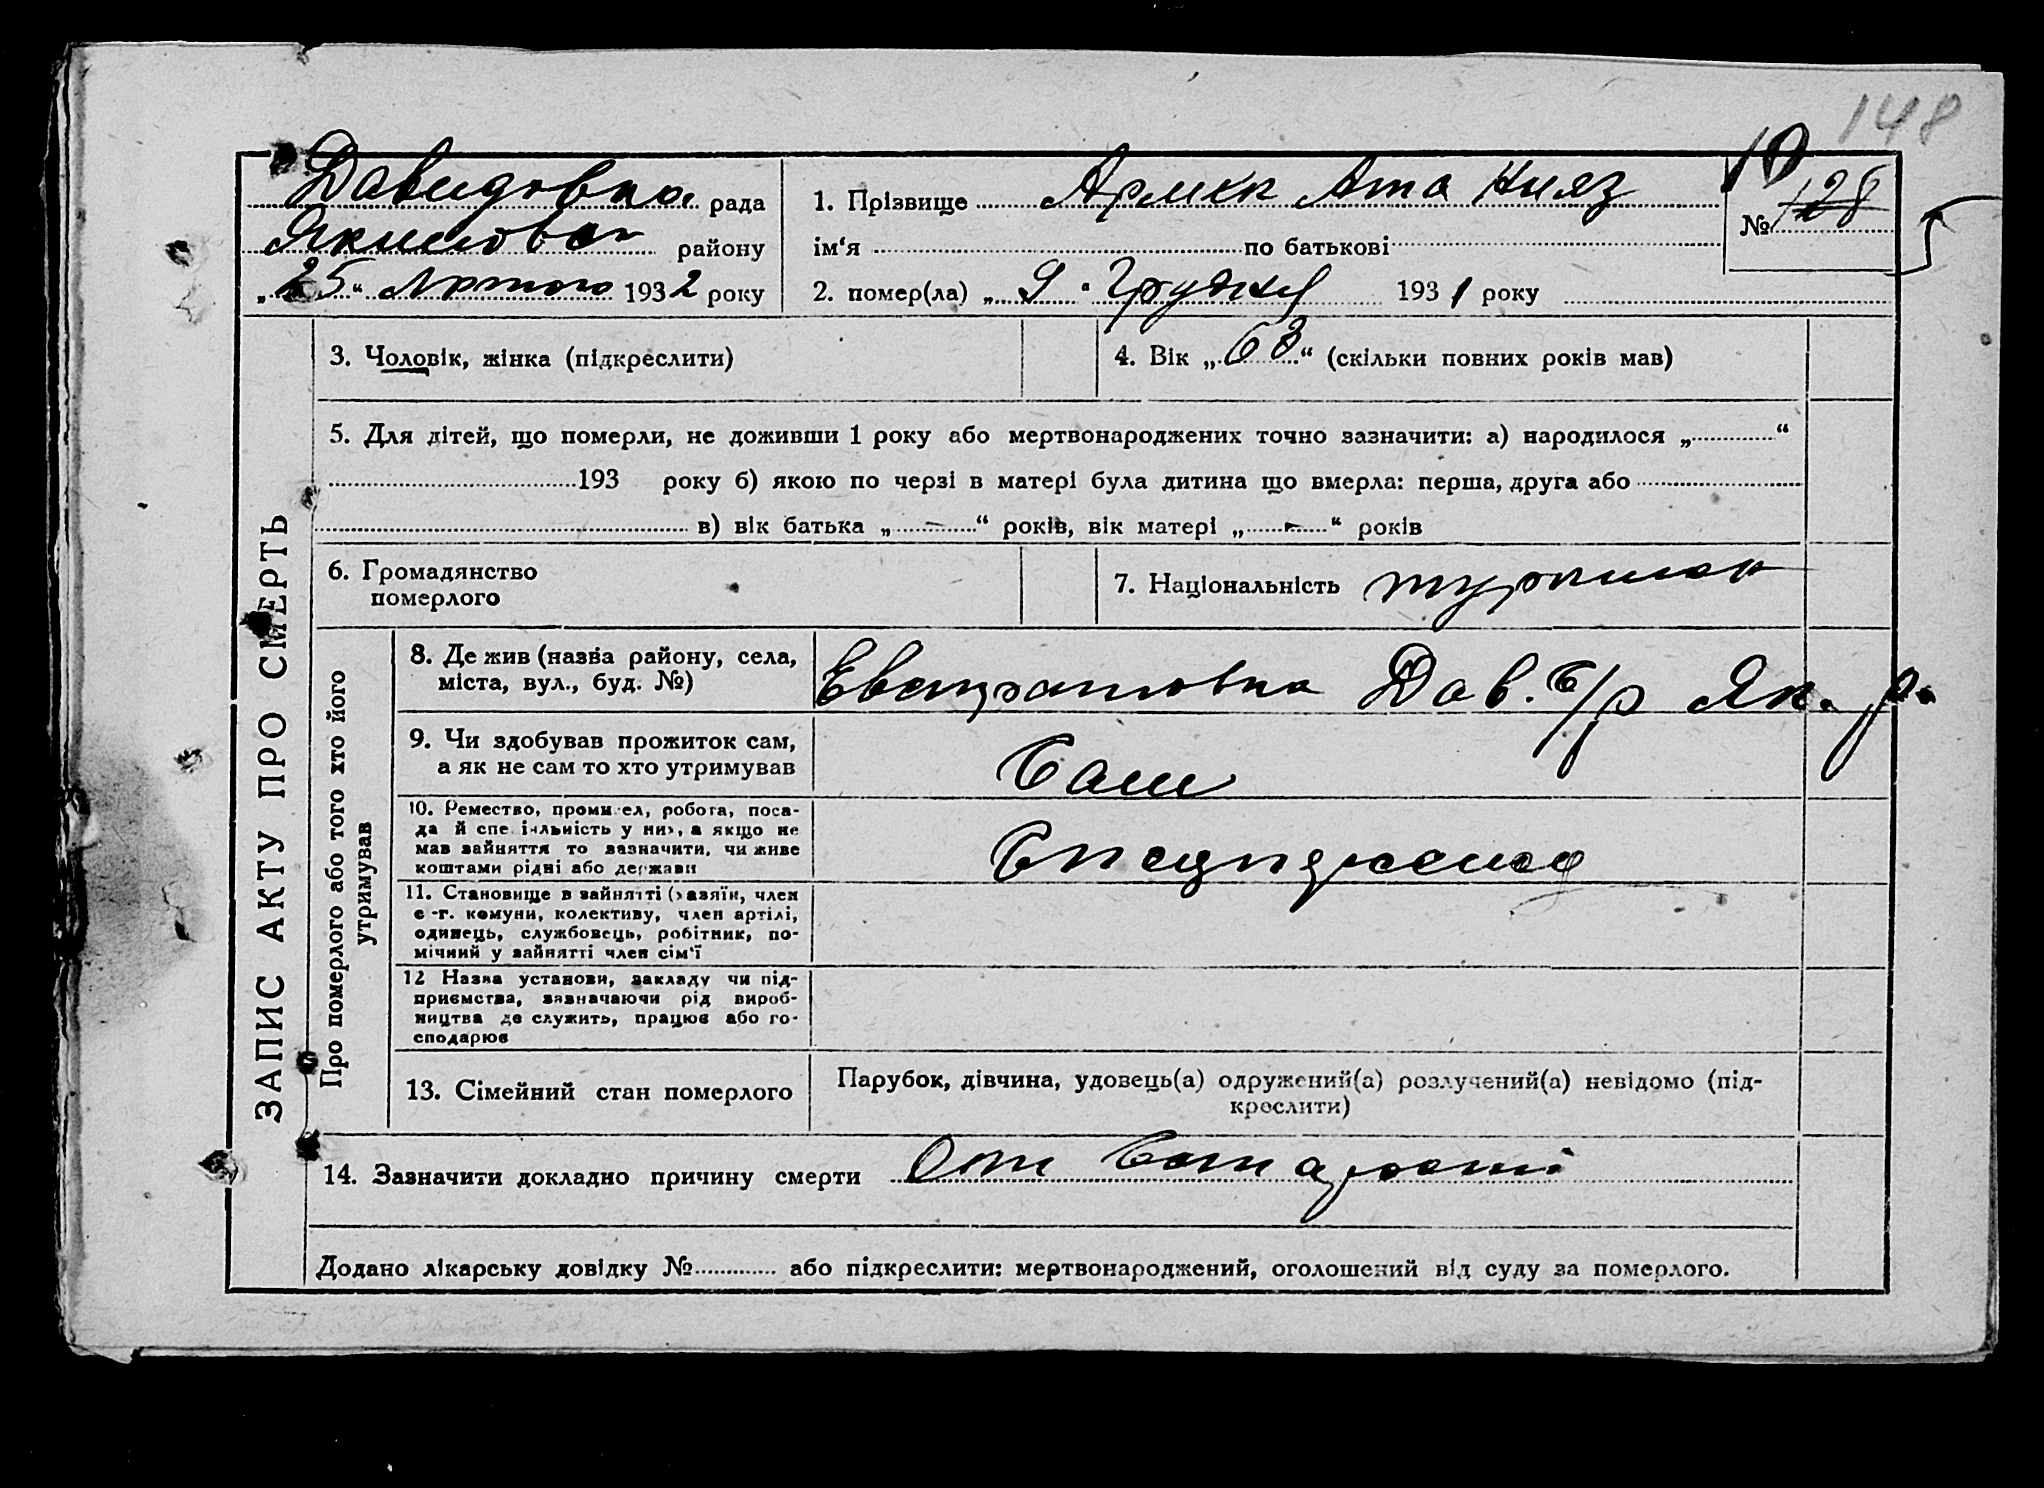 148
10
Давидовка рада
Якимовск району
„25“ Лютого 1932 року
1. Прізвище Армек Ата Нияз
ім‘я по батькові
2. помер(ла) „9“ Грудня 1931 року
№ 128
ЗАПИС АКТУ ПРО СМЕРТЬ
3. Чоловік, жінка (підкреслити)
4. Вік „63“ (скільки повних років мав)
5. Для дітей, що померли, не доживши 1 року або мертвонароджених точно зазначити: а) народилося „ “
193 року б) якою по черзі в матері була дитина що вмерла: перша, друга або
в) вік батька „ – “ років, вік матері „ – “ років
6. Громадянство
померлого
7. Національність туркмен
Про померлого або того хто його
утримував
8. Де жив (назва району, села,
міста, вул., буд. №)
Евстратовка Дав. с/р Як. р.
9. Чи здобував прожиток сам,
а як не сам то хто утримував
Сам
10. Ремество, промисел, робота, поса-
да й спеціяльність у них, а якщо не
мав зайняття то зазначити, чи живе
коштами рідні або держави
11. Становище в зайнятті (хазяїн, член
с.-г. комуни, колективу, член артілі,
одинець, службовець, робітник, по-
мічний у зайнятті член сім‘ї
12 Назва установи, закладу чи під-
приємства, зазначаючи рід вироб-
ництва де служить, працює або го-
сподарює
13. Сімейний стан померлого
Парубок, дівчина, удовець(а) одружений(а) розлучений(а) невідомо (під-
креслити)
14. Зазначити докладно причину смерти От старости
Додано лікарську довідку № або підкреслити: мертвонароджений, оголошений від суду за померлого.